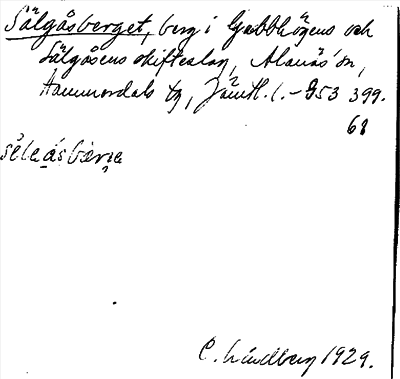 Sälgåsberget, berg i Gubbhögens och
Sälgåsens skifteslag, Alanäs sn,
Hammerdals tg, Jämtl. l. – G53 399.
68
C. Lindberg 1929.